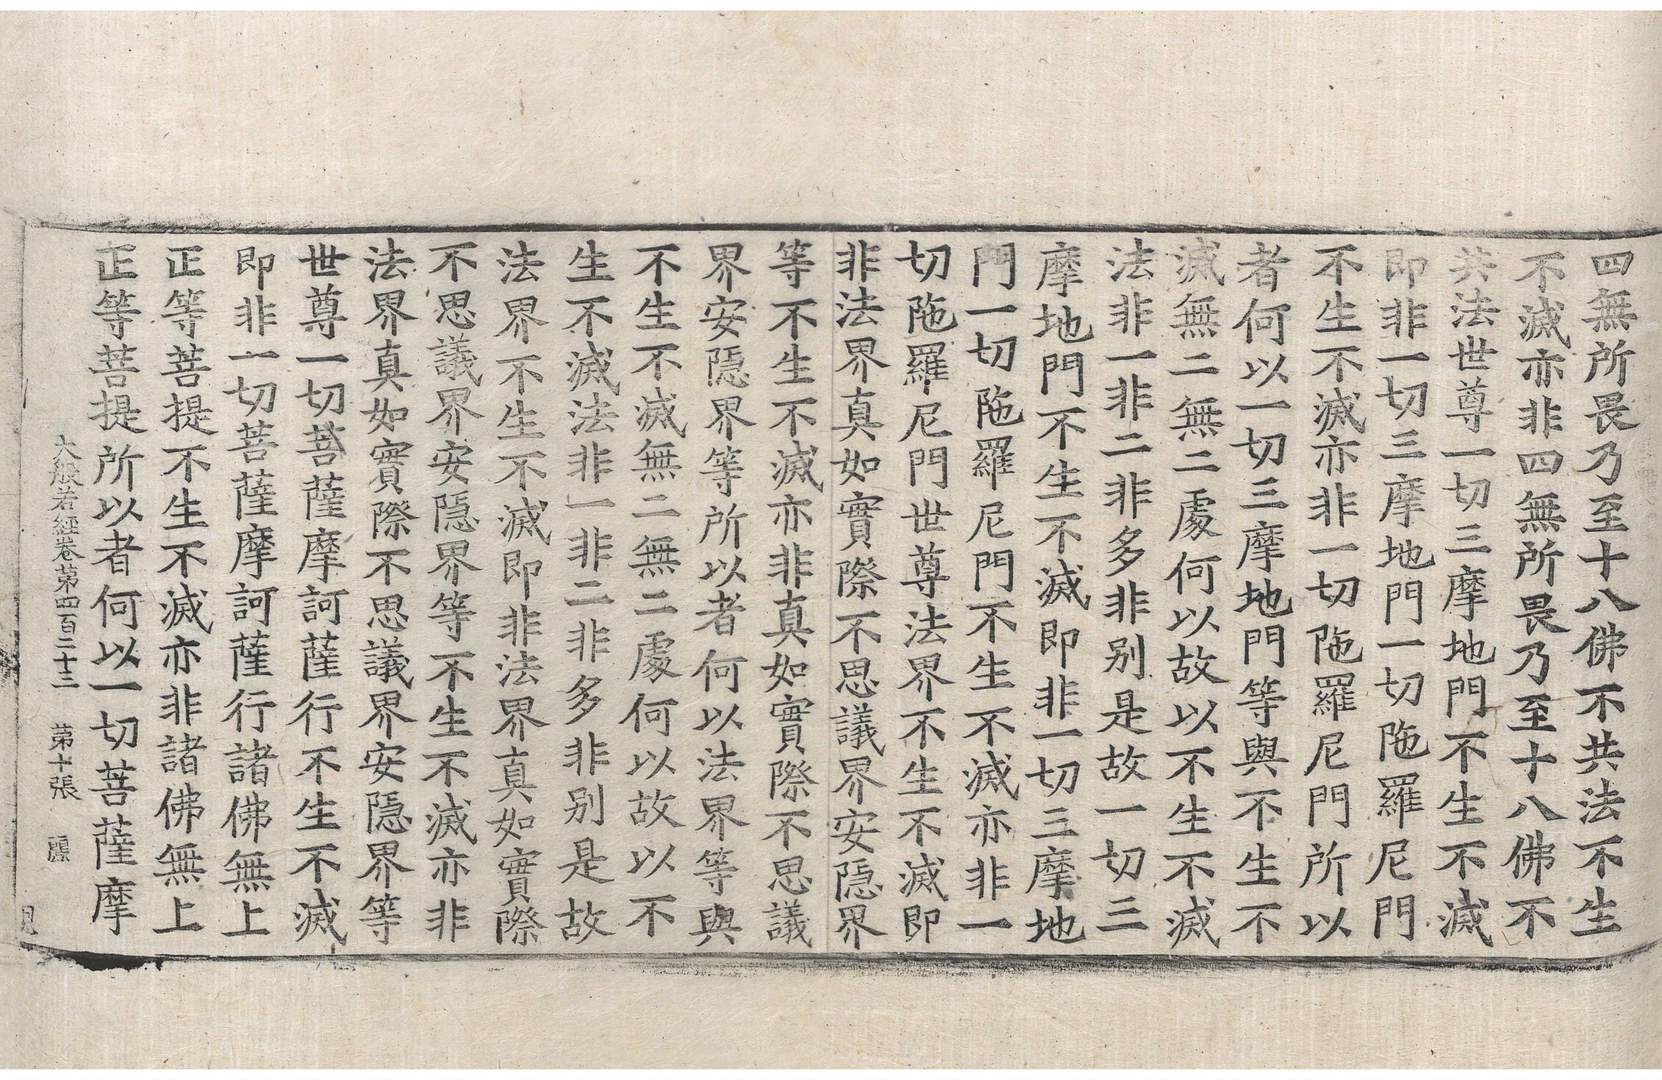 四無所畏乃至十八佛不共法不生
不滅亦非四無所畏乃至十八佛不
共法世尊一切三摩地門不生不滅
即非一切三摩地門一切陁羅尼門
不生不滅亦非一切陁羅尼門所以
者何以一切三摩地門等與不生不
滅無二無二處何以故以不生不滅
法非一非二非多非别是故一切三
摩地門不生不滅即非一切三摩地
門一切陁羅尼門不生不滅亦非一
切陁羅尼門世尊法界不生不滅即
非法界真如實際不思議界安隠界
等不生不滅亦非真如實際不思議
界安隠界等所以者何以法界等與
不生不滅無二無二處何以故以不
生不滅法非一非二非多非别是故
法界不生不滅即非法界真如實際
不思議界安隠界等不生不滅亦非
法界真如實際不思議界安隠界等
世尊一切菩薩摩訶薩行不生不滅
即非一切菩薩摩訶薩行諸佛無上
正等菩提不生不滅亦非諸佛無上
正等菩提所以者何以一切菩薩摩
大般若經卷第四百二十三 第十張